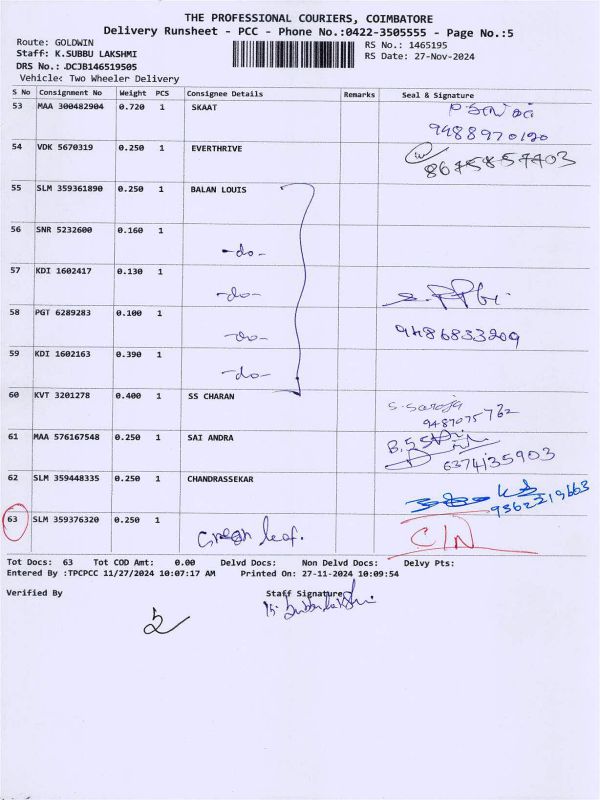 THE PROFESSIONAL COURIERS, COIMBATORE
Delivery Runsheet - PCC - Phone No.:0422-3505555 - Page No.:5
Route: GOLDWIN
Staff: K.SUBBU LAKSHMI
DRS No.: .DCJB146519505
Vehicle: Two Wheeler Delivery
RS No.: 1465195
RS Date: 27-Nov-2024
S No Consignment No Weight PCS Consignee Details Remarks Seal & Signature
53 MAA 300482904 0.720 1 SKAAT
9488970120
54 VDK 5670319 0.250 1 EVERTHRIVE
8675857703
55 SLM 359361890 0.250 1 BALAN LOUIS
56 SNR 5232600 0.160 1 -do-
57 KDI 1602417 0.130 1 -do-
58 PGT 6289283 0.100 1 -do- 9486833209
59 KDI 1602163 0.390 1 -do-
60 KVT 3201278 0.400 1 SS CHARAN S. Saroja
9487075762
61 MAA 576167548 0.250 1 SAI ANDRA
6374135903
62 SLM 359448335 0.250 1 CHANDRASSEKAR
9362219663
63 SLM 359376320 0.250 1 Green leaf. C/N
Tot Docs: 63 Tot COD Amt: 0.00 Delvd Docs: Non Delvd Docs: Delvy Pts:
Entered By :TPCPCC 11/27/2024 10:07:17 AM Printed On: 27-11-2024 10:09:54
Verified By Staff Signature
K. Subbulakshmi